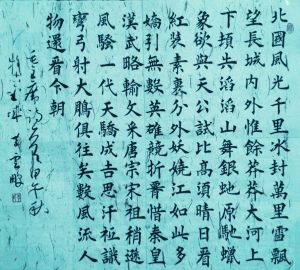 北國風光千里冰封萬里雪飄
望長城內外惟餘莽莽大河上
下頓失滔滔山舞銀蛇原馳蠟
象欲與天公試比高須晴日看
紅裝素裹分外妖嬈江如此多
嬌引無數英雄競折腰惜秦皇
漢武略輸文采唐宗宋祖稍遜
風騷一代天驕成吉思汗祗識
彎弓射大鵬俱往矣數風流人
物還看今朝
毛主席詞 甲午秋